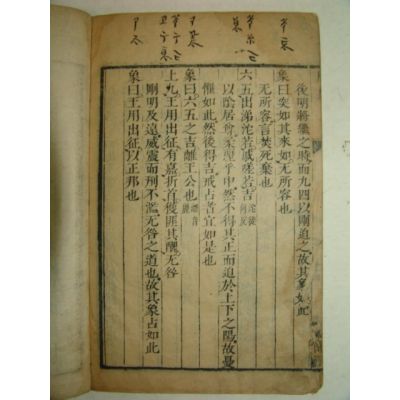 後明將繼之時而九四以剛迫之故其象如此
象曰突如其來如无所容也
无所容言焚死棄也
六五出涕沱若戚嗟若吉
以陰居尊柔麗乎中然不得其正而迫於上下之陽故憂
懼如此然後得吉戒占者宜如是也
象曰六五之吉離王公也 離音麗
上九王用出征有嘉折首獲匪其醜无咎
剛明及遠威震而刑不濫无咎之道也故其象占如此
象曰王用出征以正邦也